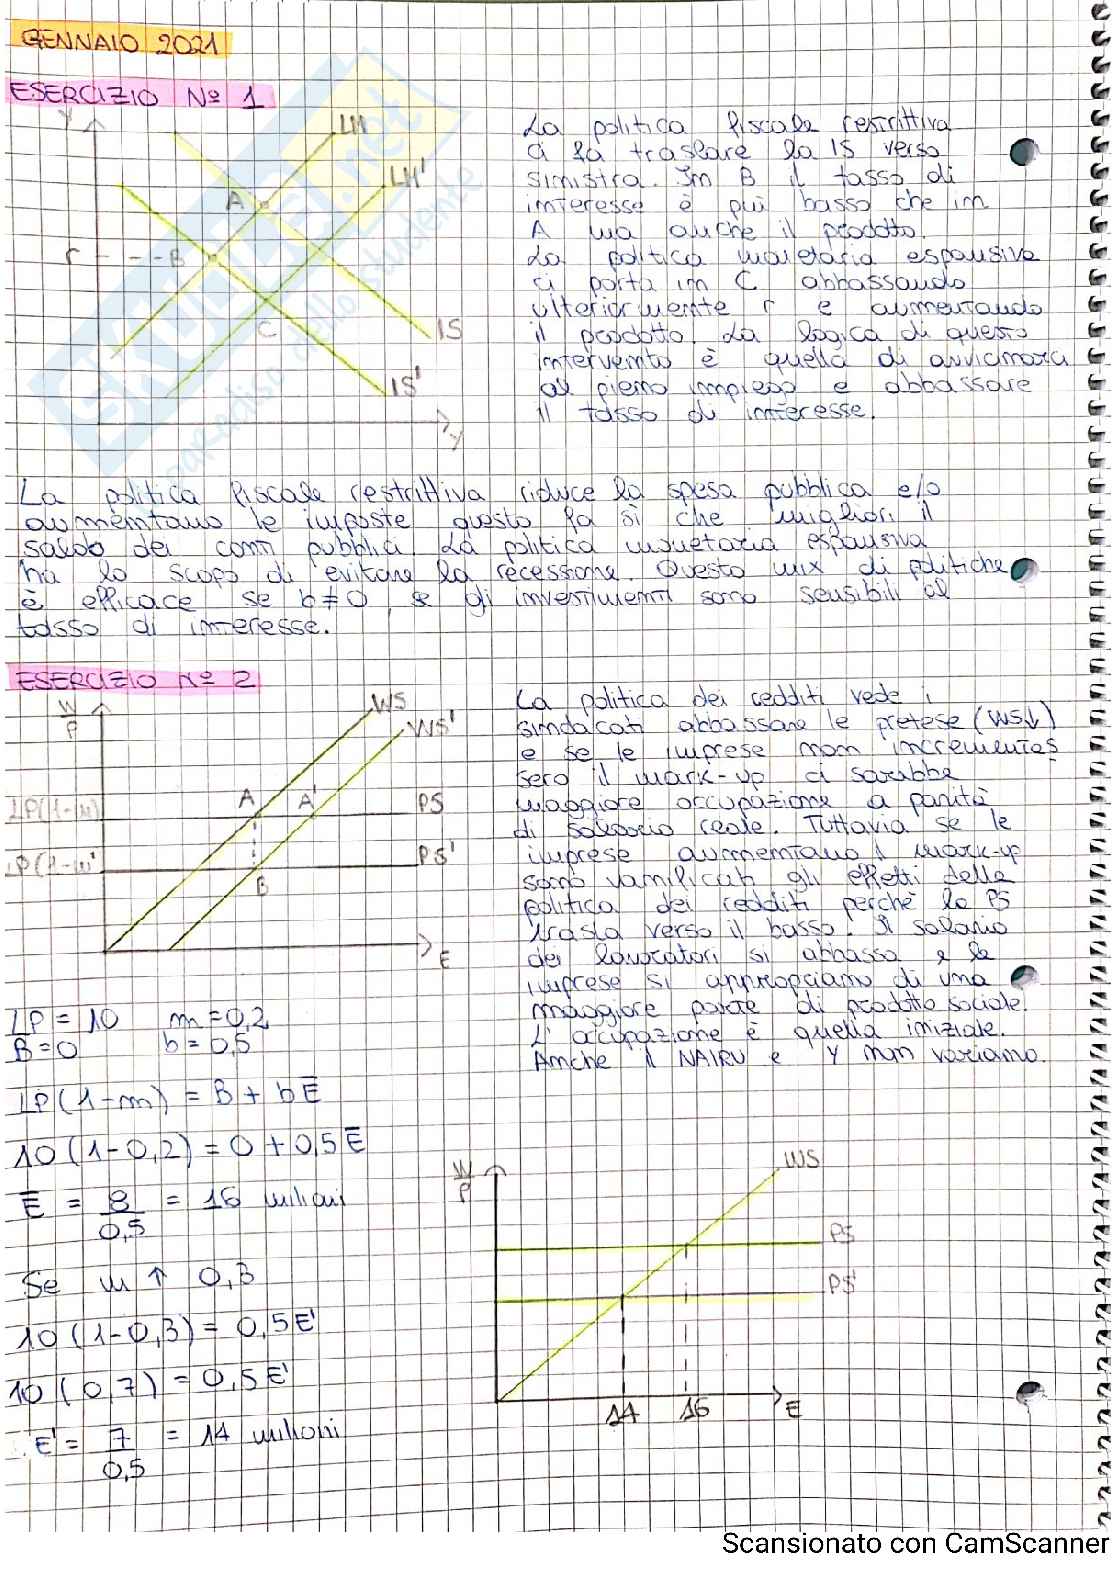 GENNAIO 2021
ESERCIZIO Nº 1
Y
LM
LM'
A
r
B
C
IS
IS'
Y
La politica fiscale restrittiva
ci fa traslare la IS verso
sinistra. In B il tasso di
interesse è più basso che in
A ma anche il prodotto.
La politica monetaria espansiva
ci porta in C abbassando
ulteriormente r e aumentando
il prodotto. La logica di questo
intervento è quella di avvicinarci
al pieno impiego e abbassare
il tasso di interesse.
La politica fiscale restrittiva riduce la spesa pubblica e/o
aumentano le imposte questo fa sì che migliori il
saldo dei conti pubblici. La politica monetaria espansiva
ha lo scopo di evitare la recessione. Questo mix di politiche
è efficace se b≠0, se gli investimenti sono sensibili al
tasso di interesse.
ESERCIZIO Nº 2
W/P
WS
WS'
LP(1-m)
A
A'
PS
LP(1-m'
PS'
B
E
La politica dei redditi vede i
sindacati abbassare le pretese (WS↓)
e se le imprese non incrementas
sero il mark-up ci sarebbe
maggiore occupazione a parità
di salario reale. Tuttavia se le
imprese aumentano il mark-up
sono vanificati gli effetti della
politica dei redditi perchè la PS
trasla verso il basso. Il salario
dei lavoratori si abbassa e le
imprese si appropriano di una
maggiore parte di prodotto sociale.
L'occupazione è quella iniziale.
Anche il NAIRU e Y non variano.
LP = 10 m = 0,2
B = 0 b = 0,5
LP(1-m) = B + bĒ
10(1-0,2) = 0 + 0,5Ē
Ē = 8/0,5 = 16 milioni
Se m ↑ 0,3
10(1-0,3) = 0,5E'
10(0,7) = 0,5E'
E' = 7/0,5 = 14 milioni
W/P
WS
PS
PS'
14 16 E
Scansionato con CamScanner